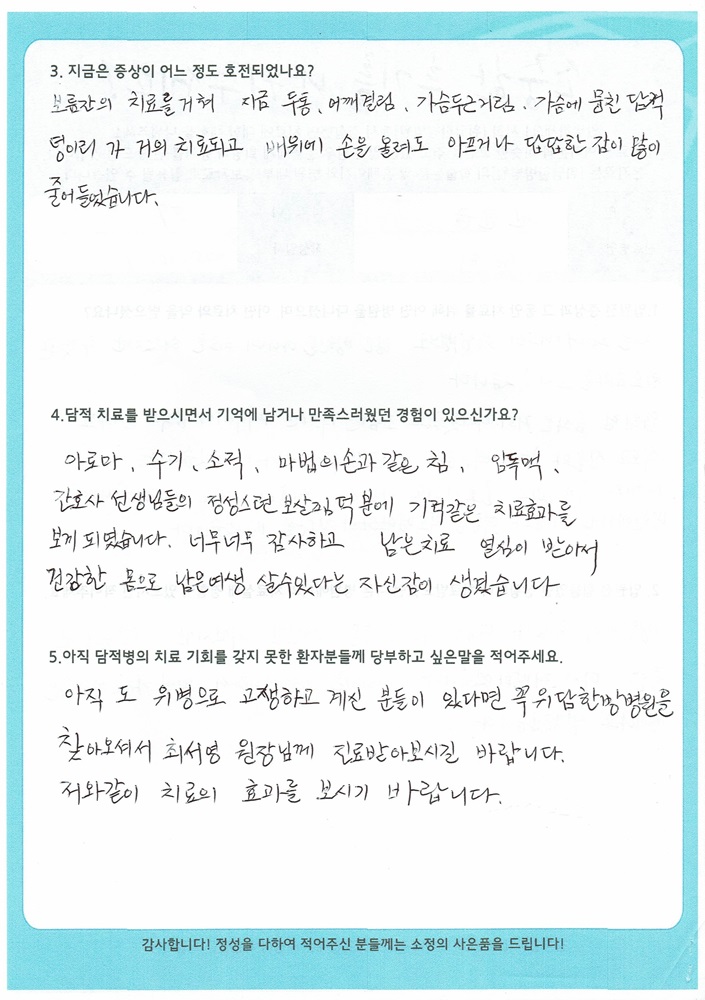 3. 지금은 증상이 어느 정도 호전되었나요?
보름간의 치료를거쳐 지금 두통, 어깨결림, 가슴두근거림, 가슴에 뭉친 담적
덩이리 가 거의 치료되고 배위에 손을 올려도 아프거나 답답한 감이 많이
줄어들었습니다.
4.담적 치료를 받으시면서 기억에 남거나 만족스러웠던 경험이 있으신가요?
아로마, 수기, 소적, 마법의손과 같은 침, 임독맥,
간호사 선생님들의 정성스런 보살핌 덕분에 기적같은 치료효과를
보게 되였습니다. 너무너무 감사하고 남은치료 열심이 받아서
건강한 몸으로 남은여생 살수있다는 자신감이 생겼습니다
5.아직 담적병의 치료 기회를 갖지 못한 환자분들께 당부하고 싶은말을 적어주세요.
아직 도 위병으로 고생하고 계신 분들이 있다면 꼭 위담한방병원을
찾아오셔서 최서영 원장님께 진료받아보시길 바랍니다.
저와같이 치료의 효과를 보시기 바랍니다.
감사합니다! 정성을 다하여 적어주신 분들께는 소정의 사은품을 드립니다!